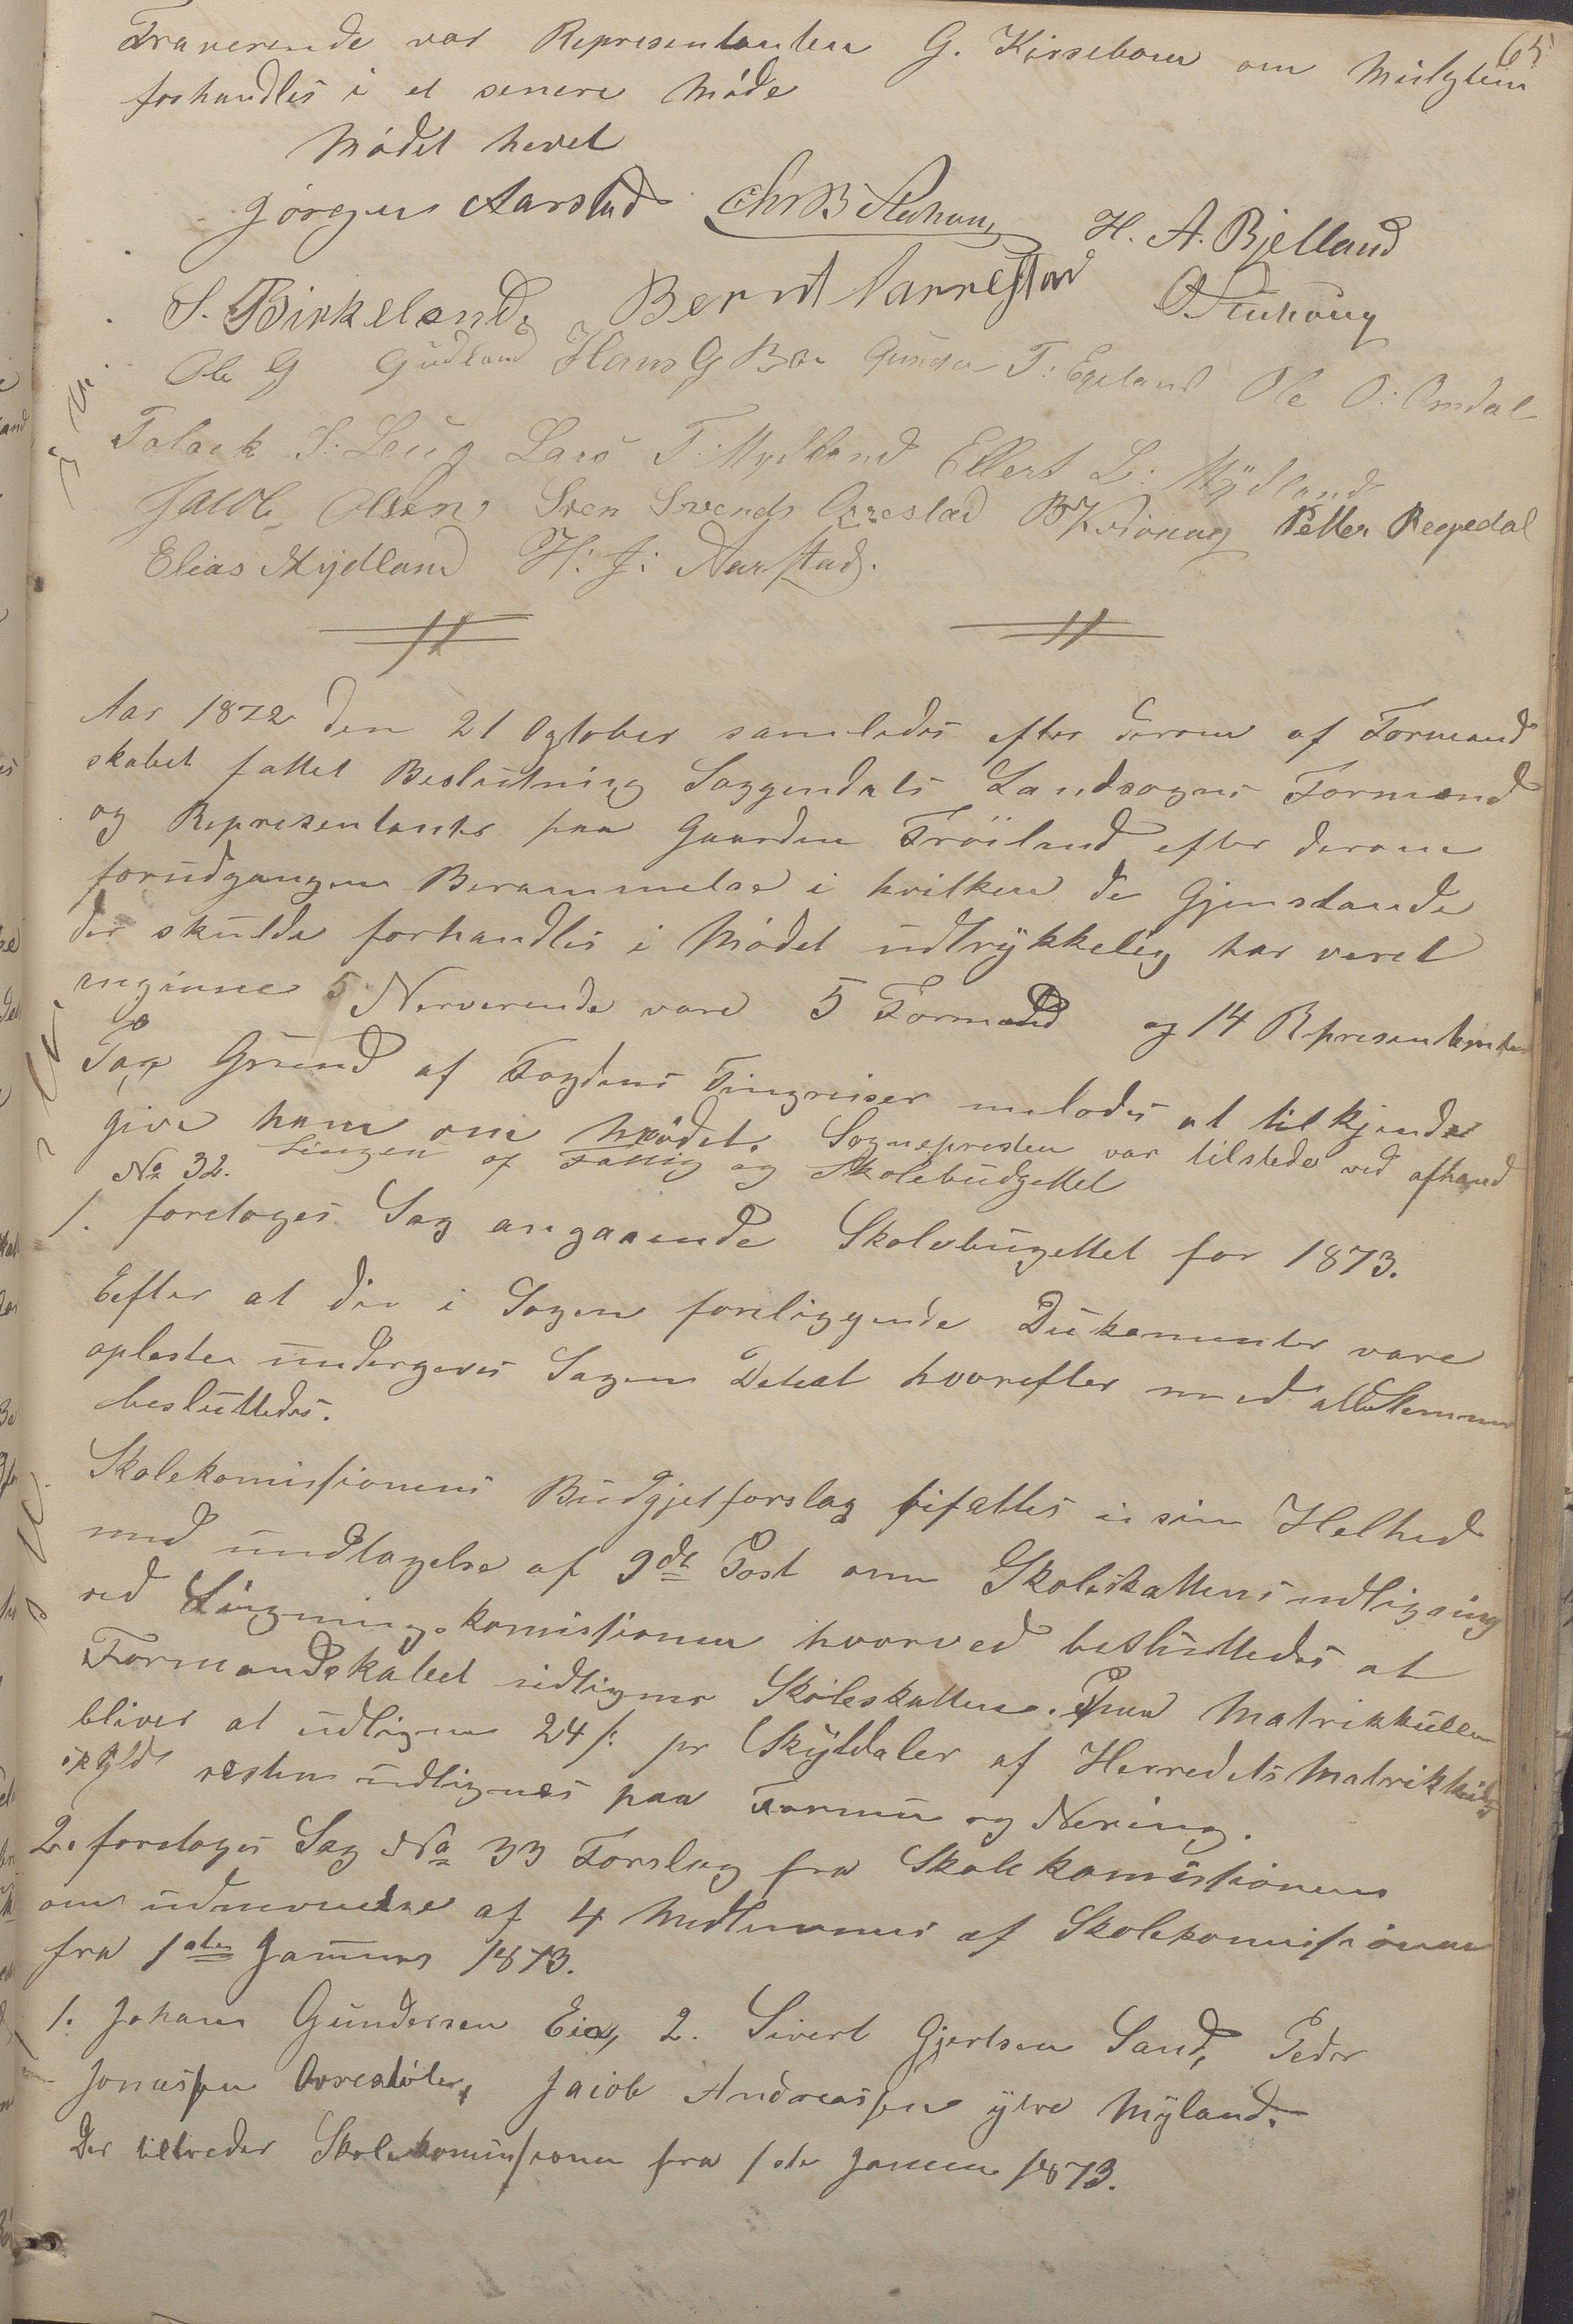 65
Fraverende var Representanten G. Kirsebom om Midlylim
forhandles i et senere Möde
Mödet hevet
Jörgen Aarstad Chr B Stuhoug H. A. Bjelland
S. Birkeland, Bernt Aarrestad O. Stuhoug
Ole G Gudland Hans G Bøe Gunder T: Egeland Ole O: Omdal
Tolack S: Leug Lars T: Mydland Ellert L: Mydland
Jacob Olsen Sven Svends Orrestad B Petter Regedal
Elias Mydland H: J: Aarstad.
Aar 1872 den 21 Ogtober samledes efter derom af Formand
skabet fattet Beslutning Soggendals Landsogns Formænd
og Representanter paa Gaarden Fröiland efter derom
forudgangen Berammelse i hvilken de Gjenstande
der skulde forhandles i Mödet udtrykkelig har veret
anginne Nerverende vare 5 Formænd og 14 Representanter
Paa Grund af Fogdens Tingreiser unlodes at tilkjende
give ham om Mödet. Sognepresten var tilstede ved afhand
lingen af Fattig og Skolebudgettet
No 32.
1. foretoges Sag angaaende Skolebugettet for 1873.
Eefter at die i Sagen foreliggende Dukomenter vare
opleste undergaves Sagen Debat hvorefter med alle Stemmer
besluttedes.
Skolekomissionens Budgjetforslag bifaltes i sin Helhed
med undtagelse af 9de Post om Skoleskattens udligning
ved Ligningskomissionen hvorved besluttedes at
Formandskabet udligner Skoleskatten. Paa Matrikkullen
bliver at udligne 24 s: pr Skyldaler af Herredets Matrikkuls
skyld resten udlignes paa Formue og Nering.
2. foretoges Sag No 33 Forslag fra Skolekomissionen
om udnevnelse af 4 Medlemmer af Skolekomissionen
fra 1ste Januar 1873.
1. Johan Gundersen Eia, 2. Sivert Gjertsen Sand, Peder
Jonassen Orrestöler, Jacob Andreassen ytre Myland.
Der tiltreder Skolekomissionen fra 1ste Januar 1873.